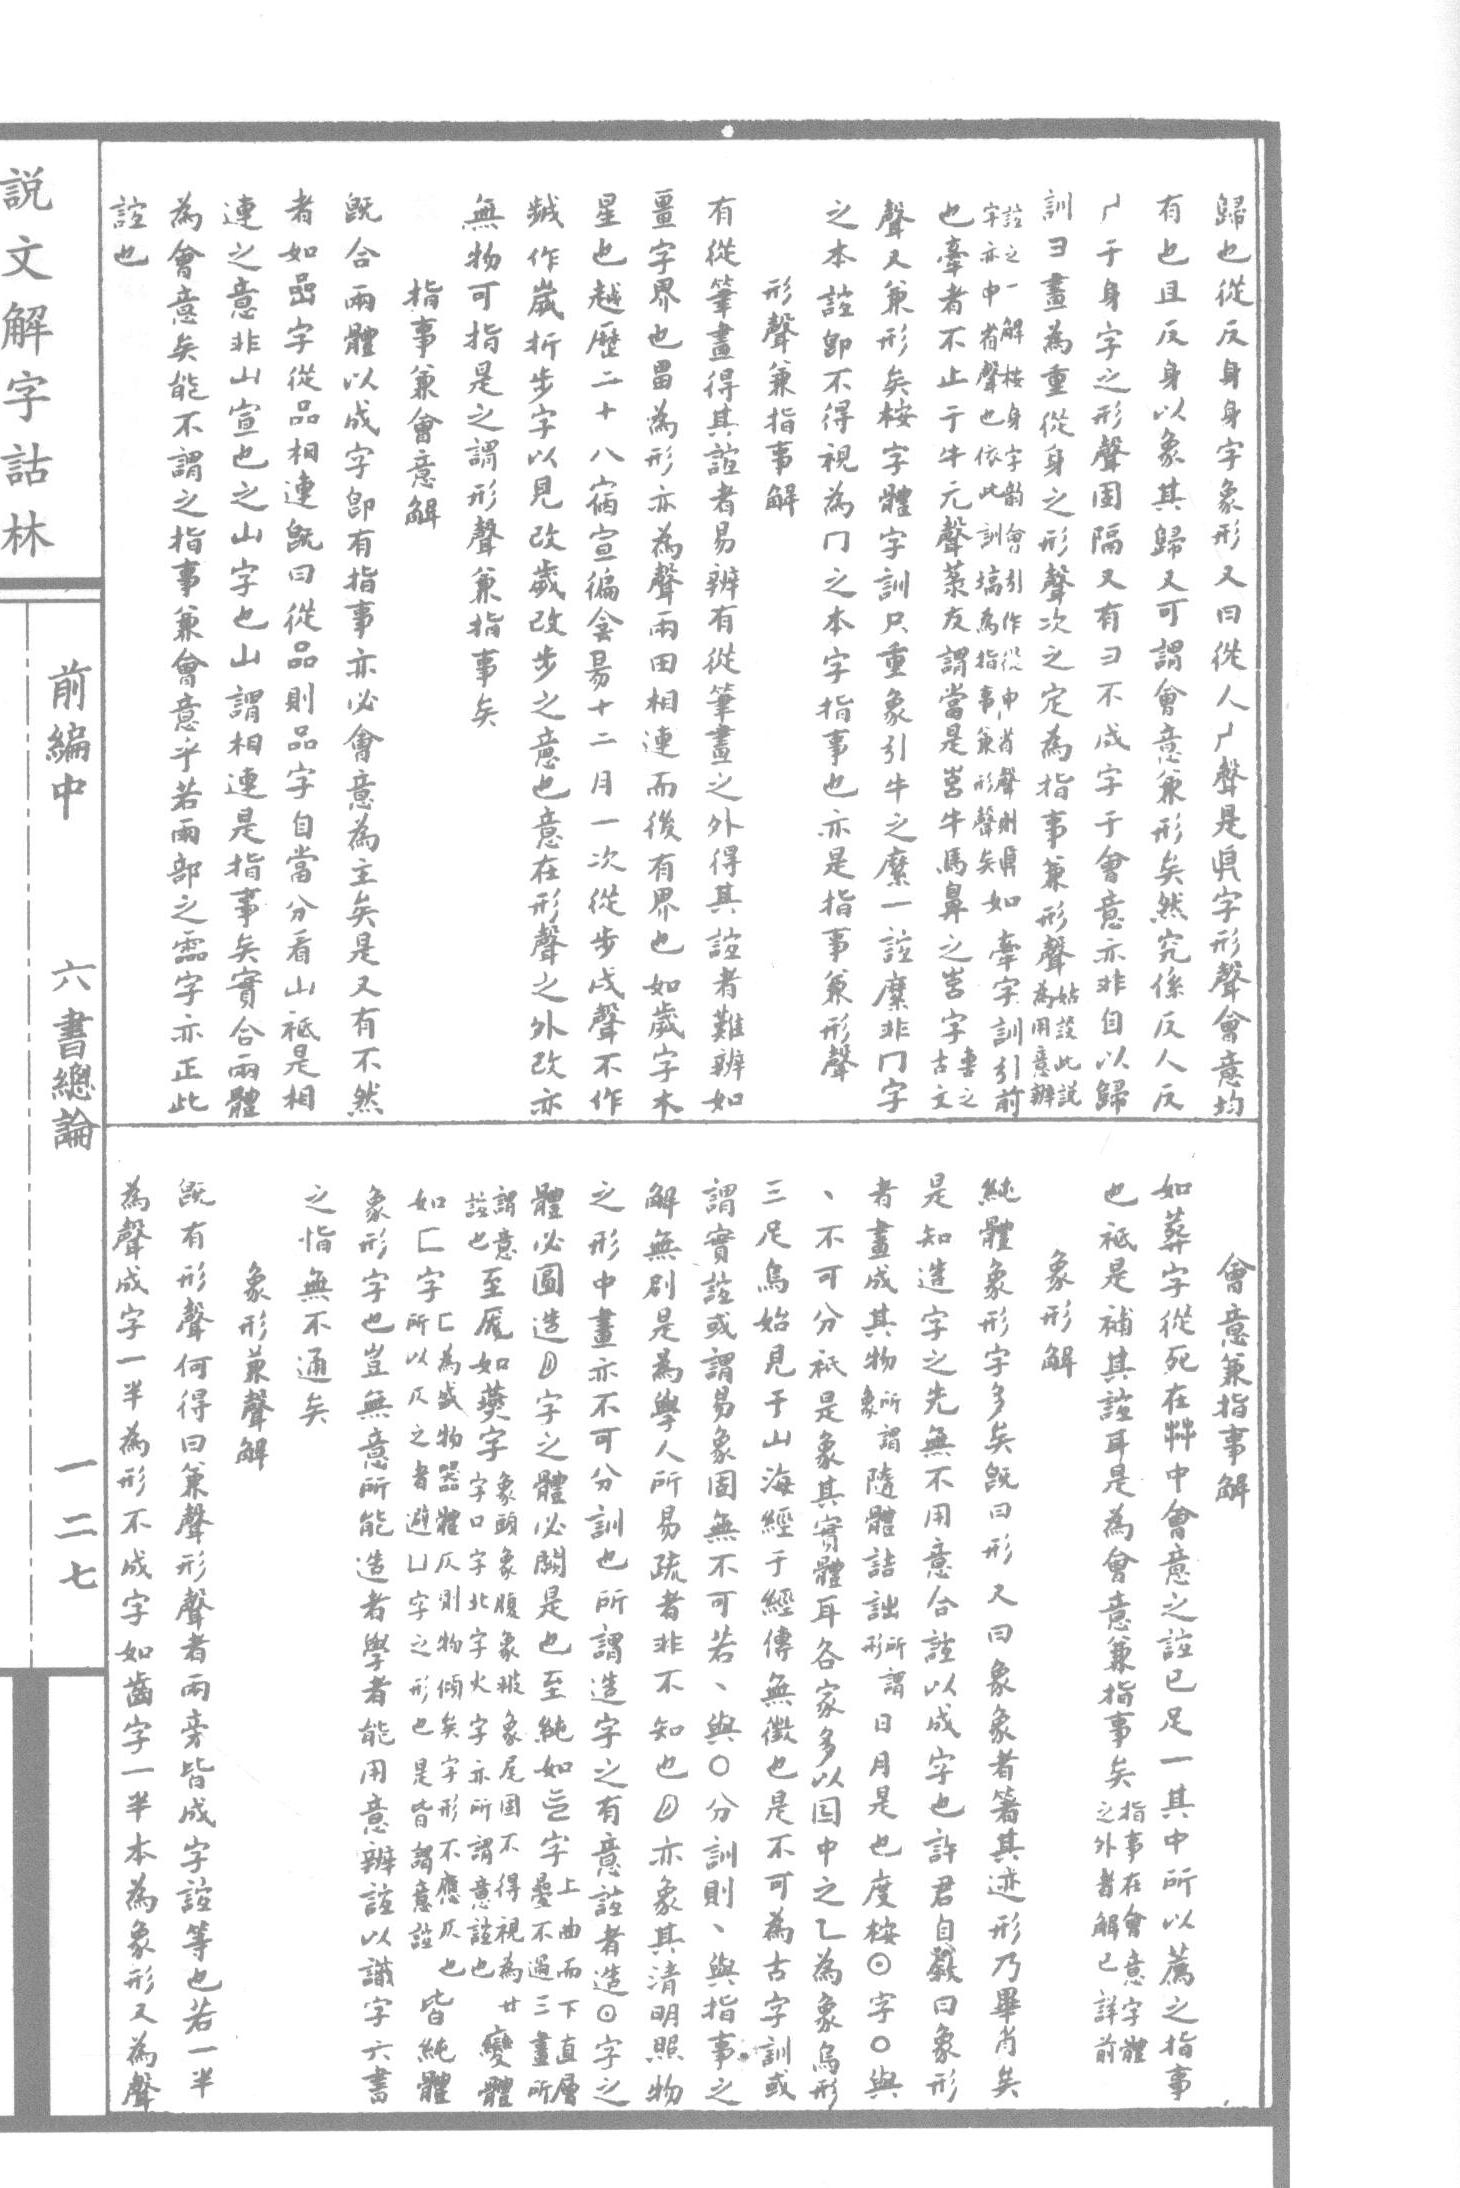 歸也從反身身字象形又曰從人𠂆聲是㐆字形聲會意均
有也且反身以象其歸又可謂會意兼形矣然究係反人反
𠂆于身字之形聲固隔又有彐不成字于會意亦非自以歸
訓彐畫為重從身之形聲次之定為指事兼形聲姑設此說為用意辦
誼之一解桉身字韵會引作從申省聲則㐆字亦申省聲也依此訓塙為指事兼形聲矣如牽字訓引前
也牽者不止于牛元聲菉友謂當是㟯牛馬鼻之㟯字古文
聲又兼形矣桉字體字訓只重象引牛之縻一誼縻非冂字
之本誼卽不得視為冂之本字指事也亦是指事兼形聲
形聲兼指事解
有從筆畫得其誼者易辨有從筆畫之外得其誼者難辨如
畺字界也畕為形亦為聲兩田相連而後有界也如歲字木
星也越歷二十八宿宣徧侌昜十二月一次從步戌聲不作
𢧵作嵗折步字以見改歲改步之意也意在形聲之外改亦
無物可指是之謂形聲兼指事矣
指事兼會意解
旣合兩體以成字卽有指事亦必會意為主矣是又有不然
者如嵒字從品相連旣曰從品則品字自當分看山祗是相
連之意非山宣也之山字也山謂相連是指事矣實合兩體
為會意矣能不謂之指事兼會意乎若雨部之靁字亦正此
誼也
會意兼指事解
如葬字從死在茻中會意之誼已足一其中所以薦之指事
也祗是補其誼耳是為會意兼指事矣指事在會意字體之外者解已詳前
象形解
純體象形字多矣旣曰形又曰象象者箸其迹形乃畢肖矣
是知造字之先無不用意合誼以成字也許君自敍曰象形
者畫成其物所謂象隨體詰詘所謂形日月是也度桉⊙字○與
丶不可分祗是象其實體耳各家多以囙中之乙為象烏形
三足烏始見于山海經于經傳無徵也是不可為古字訓或
謂實誼或謂易象固無不可若丶與○分訓則丶與指事之
解無別是為學人所易疏者非不知也亦象其清明照物
之形中畫亦不可分訓也所謂造字之有意誼者造⊙字之
體必圓造字之體必闕是也至純如字上曲而下直層疊不過三畫所
謂意誼也至廐如燕字象頭象腹象𢻹象尾固不得視為廿字口字北字火字亦所謂意誼也變體
如匚字匚為盛物器體仄則物傾矣字形不應仄也所以仄之者避凵字之形也是皆謂意誼皆純體
象形字也豈無意所能造者學者能用意辦誼以識字六書
之恉無不通矣
象形兼聲解
旣有形聲何得曰兼聲形聲者兩旁皆成字誼等也若一半
為聲成字一半為形不成字如齒字一半本為象形又為聲
說文解字詁林
前編中
六書總論
一二七